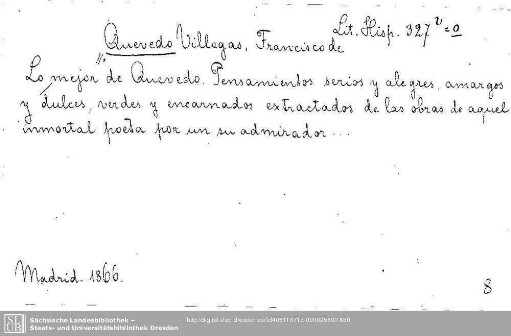 Lit. Hisp. 327 v=o
Quevedo Villegas, Francisco de
Lo mejor de Quevedo. Pensamientos serios y alegres, amargos
y dulces, verdes y encarnados extractados de las obras de aquel
inmortal poeta por un su admirador...
Madrid. 1866.
8
Sächsische Landesbibliothek –
Staats- und Universitätsbibliothek Dresden